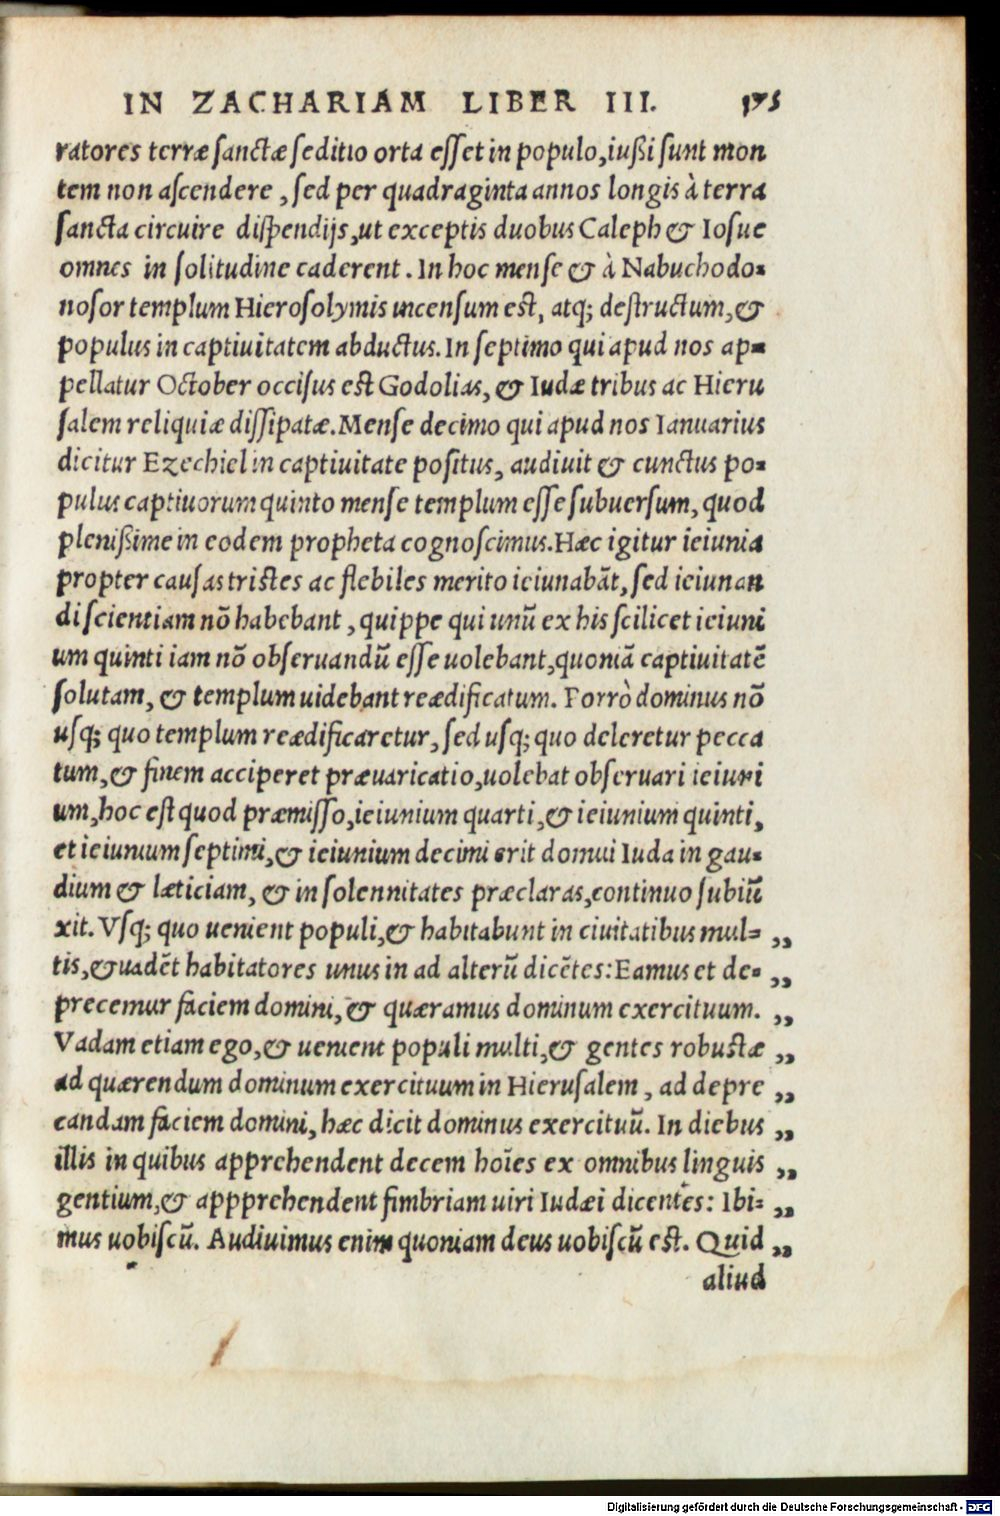 IN ZACHARIAM LIBER III. 175
ratores terræ sanctæ seditio orta esset in populo, iußi sunt mon
tem non ascendere, sed per quadraginta annos longis à terra
sancta circuire dispendijs, ut exceptis duobus Caleph & Iosue
omnes in solitudine caderent. In hoc mense & à Nabuchodo-
nosor templum Hierosolymis incensum est, atq; destructum, &
populus in captiuitatem abductus. In septimo qui apud nos ap-
pellatur October occisus est Godolias, & Iudæ tribus ac Hieru
salem reliquiæ dissipatæ. Mense decimo qui apud nos Ianuarius
dicitur Ezechiel in captiuitate positus, audiuit & cunctus po-
pulus captiuorum quinto mense templum esse subuersum, quod
plenißime in eodem propheta cognoscimus. Hæc igitur ieiunia
propter causas tristes ac flebiles merito ieiunabãt, sed ieiunan
di scientiam nõ habebant, quippe qui unũ ex his scilicet ieiuni
um quinti iam nõ obseruandũ esse uolebant, quoniã captiuitatẽ
solutam, & templum uidebant reædificatum. Porrò dominus nõ
usq; quo templum reædificaretur, sed usq; quo deleretur pecca
tum, & finem acciperet præuaricatio, uolebat obseruari ieiuni
um, hoc est quod præmisso, ieiunium quarti, & ieiunium quinti,
et ieiunium septimi, & ieiunium decimi erit domui Iuda in gau-
dium & læticiam, & in solennitates præclaras, continuo subiũ
xit. Vsq; quo uenient populi, & habitabunt in ciuitatibus mul- ,,
tis, & uadẽt habitatores unus in ad alterũ dicẽtes: Eamus et de- ,,
precemur faciem domini, & quæramus dominum exercituum. ,,
Vadam etiam ego, & uenient populi multi, & gentes robustæ ,,
ad quærendum dominum exercituum in Hierusalem, ad depre ,,
candam faciem domini, hæc dicit dominus exercituũ. In diebus ,,
illis in quibus apprehendent decem hoĩes ex omnibus linguis ,,
gentium, & appprehendent fimbriam uiri Iudæi dicentes: Ibi- ,,
mus uobiscũ. Audiuimus enim quoniam deus uobiscũ est. Quid ,,
aliud
Digitalisierung gefördert durch die Deutsche Forschungsgemeinschaft - DFG